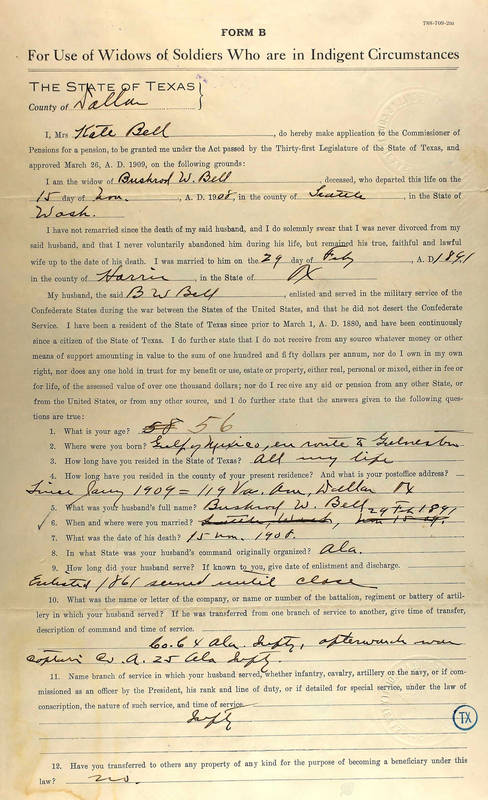 788-709-2m
FORM B
For Use of Widows of Soldiers Who are in Indigent Circumstances
THE STATE OF TEXAS
County of Dallas
I, Mrs Kate Bell, do hereby make application to the Commissioner of
Pensions for a pension, to be granted me under the Act passed by the Thirty-first Legislature of the State of Texas, and
approved March 26, A. D. 1909, on the following grounds:
I am the widow of Bushrod W. Bell, deceased, who departed this life on the
15 day of Nov., A. D. 1908, in the county of Seattle, in the State of
Wash.
I have not remarried since the death of my said husband, and I do solemnly swear that I was never divorced from my
said husband, and that I never voluntarily abandoned him during his life, but remained his true, faithful and lawful
wife up to the date of his death. I was married to him on the 29 day of Feb, A. D. 1891
in the county of Harris, in the State of TX
My husband, the said B W Bell, enlisted and served in the military service of the
Confederate States during the war between the States of the United States, and that he did not desert the Confederate
Service. I have been a resident of the State of Texas since prior to March 1, A. D. 1880, and have been continuously
since a citizen of the State of Texas. I do further state that I do not receive from any source whatever money or other
means of support amounting in value to the sum of one hundred and fifty dollars per annum, nor do I own in my own
right, nor does any one hold in trust for my benefit or use, estate or property, either real, personal or mixed, either in fee or
for life, of the assessed value of over one thousand dollars; nor do I receive any aid or pension from any other State, or
from the United States, or from any other source, and I do further state that the answers given to the following ques-
tions are true:
1. What is your age? 58 56
2. Where were you born? Gulf of Mexico, en route to Galveston
3. How long have you resided in the State of Texas? All my life
4. How long have you resided in the county of your present residence? And what is your postoffice address?
Since Jany 1909 = 119 Ave, Dallas TX
5. What was your husband's full name? Bushrod W. Bell
6. When and where were you married? Seattle, Wash, Nov 15 29 Feb 1891
7. What was the date of his death? 15 Nov. 1908.
8. In what State was your husband's command originally organized? Ala.
9. How long did your husband serve? If known to you, give date of enlistment and discharge.
Enlisted 1861 served until close
10. What was the name or letter of the company, or name or number of the battalion, regiment or battery of artil-
lery in which your husband served? If he was transferred from one branch of service to another, give time of transfer,
description of command and time of service.
Co. 64 Ala. Infty, afterwards was
Captain Co. A. 25 Ala Infty.
11. Name branch of service in which your husband served, whether infantry, cavalry, artillery or the navy, or if com-
missioned as an officer by the President, his rank and line of duty, or if detailed for special service, under the law of
conscription, the nature of such service, and time of service.
Infty
TX
12. Have you transferred to others any property of any kind for the purpose of becoming a beneficiary under this
law? no.